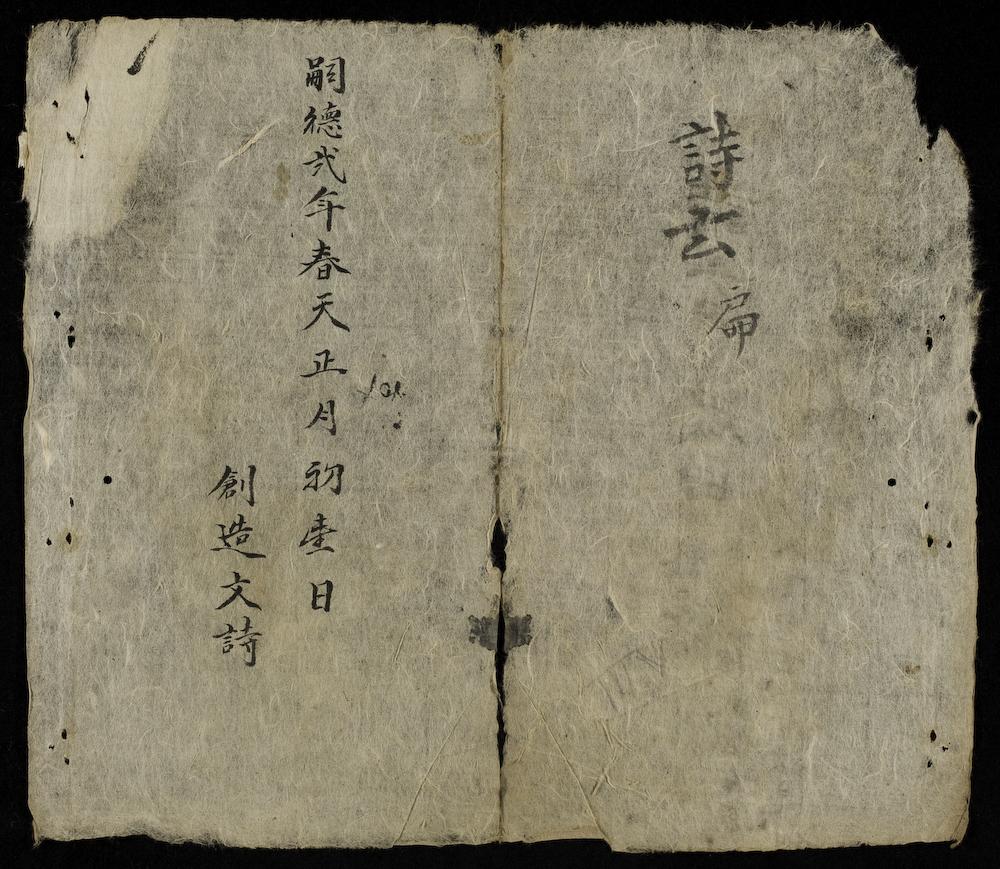 詩云扁
嗣德弍年春天正月初壹日
創造文詩